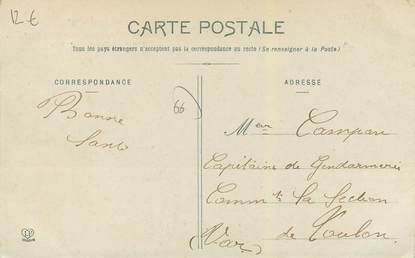 12 €
CARTE POSTALE
Tous les pays étrangers n'acceptent pas la correspondance au recto (Se renseigner à la Poste)
CORRESPONDANCE
ADRESSE
Bonne
Santé
66
Campan
Capitaine de Gendarmerie
Commt la Section
de Toulon
(Var)